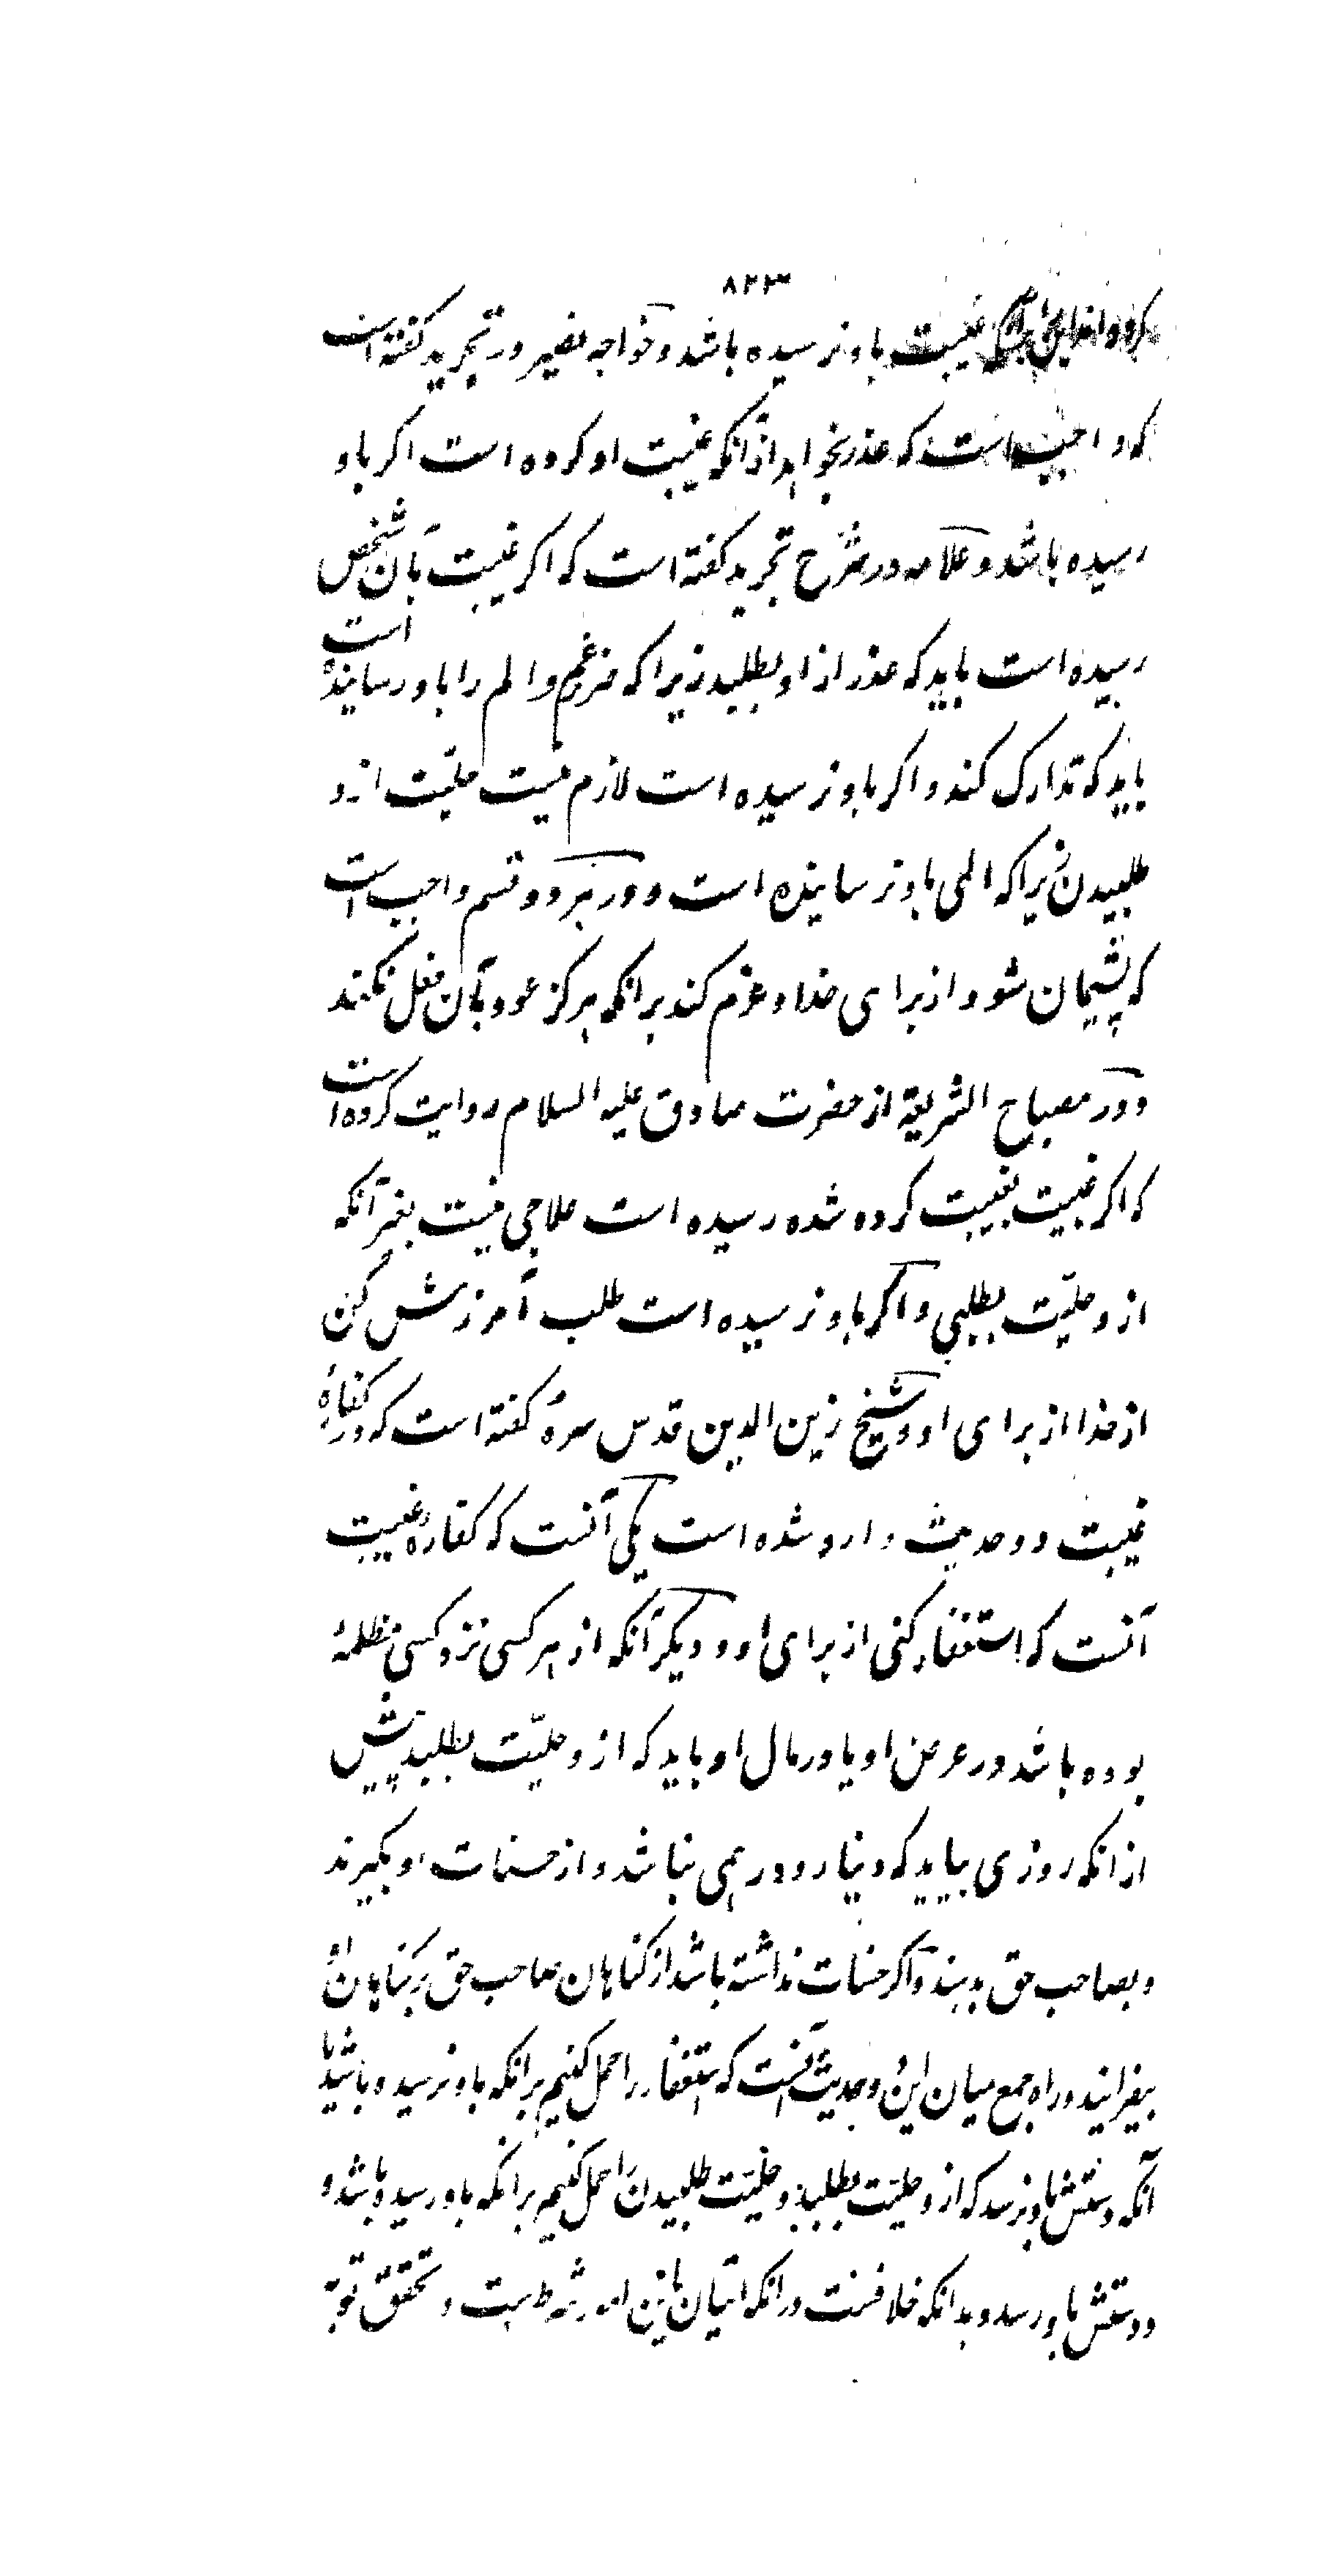 ۸۲۳
غیبت باو نرسیده باشد و خواجه نصیر در تجرید کفته است
که واجبست که عذر بخواهد ازانکه غیبت او کرده است اکر باو
رسیده باشد و علامه در شرح تجرید کفته است که اکر غیبت بآن شخص
رسیده است باید که عذر از او بطلبد زیرا که ضرر غم و الم را باو رسانیده است
باید که تدارک کند و اکر باو نرسیده است لازم نیست حلیّت ازو
طلبیدن زیرا که المی باو نرسانیده است و در هر دو قسم واجب است
که پشیمان شود از برای خدا و عزم کند برانکه هرکز عود بآن فعل نکند
و در مصباح الشریعة از حضرت صادق علیه السلام روایت کرده است
که اکر غیبت بغیبت کرده شده رسیده است علاجی نیست بغیر آنکه
ازو حلیّت بطلبی و اکر باو نرسیده است طلب آمرزش کن
از خدا از برای او و شیخ زین الدین قدس سره کفته است که در کفارهٔ
غیبت دو حدیث وارد شده است یکی آنست که کفارهٔ غیبت
آنست که استغفار کنی از برای او و دیکر آنکه از هر کسی نزد کسی مظلمهٔ
بوده باشد در عرض او یا در مال او باید که ازو حلیّت بطلبد پیش
ازانکه روزی بیاید که دینار و درهمی نباشد و از حسنات او بکیرند
و بصاحب حق بدهند و اکر حسنات نداشته باشد از کناهان صاحب حق بر کناهان او
بیفزایند و راه جمع میان این دو حدیث آنست که استغفار را حمل کنیم برانکه باو نرسیده باشد یا
آنکه دستش باو نرسد که ازو حلیّت بطلبد و حلیّت طلبیدن را حمل کنیم برانکه باو رسیده باشد و
و دستش باو رسد و بدانکه خلافست درانکه اتیان باین امور شرطست در تحقق توبه